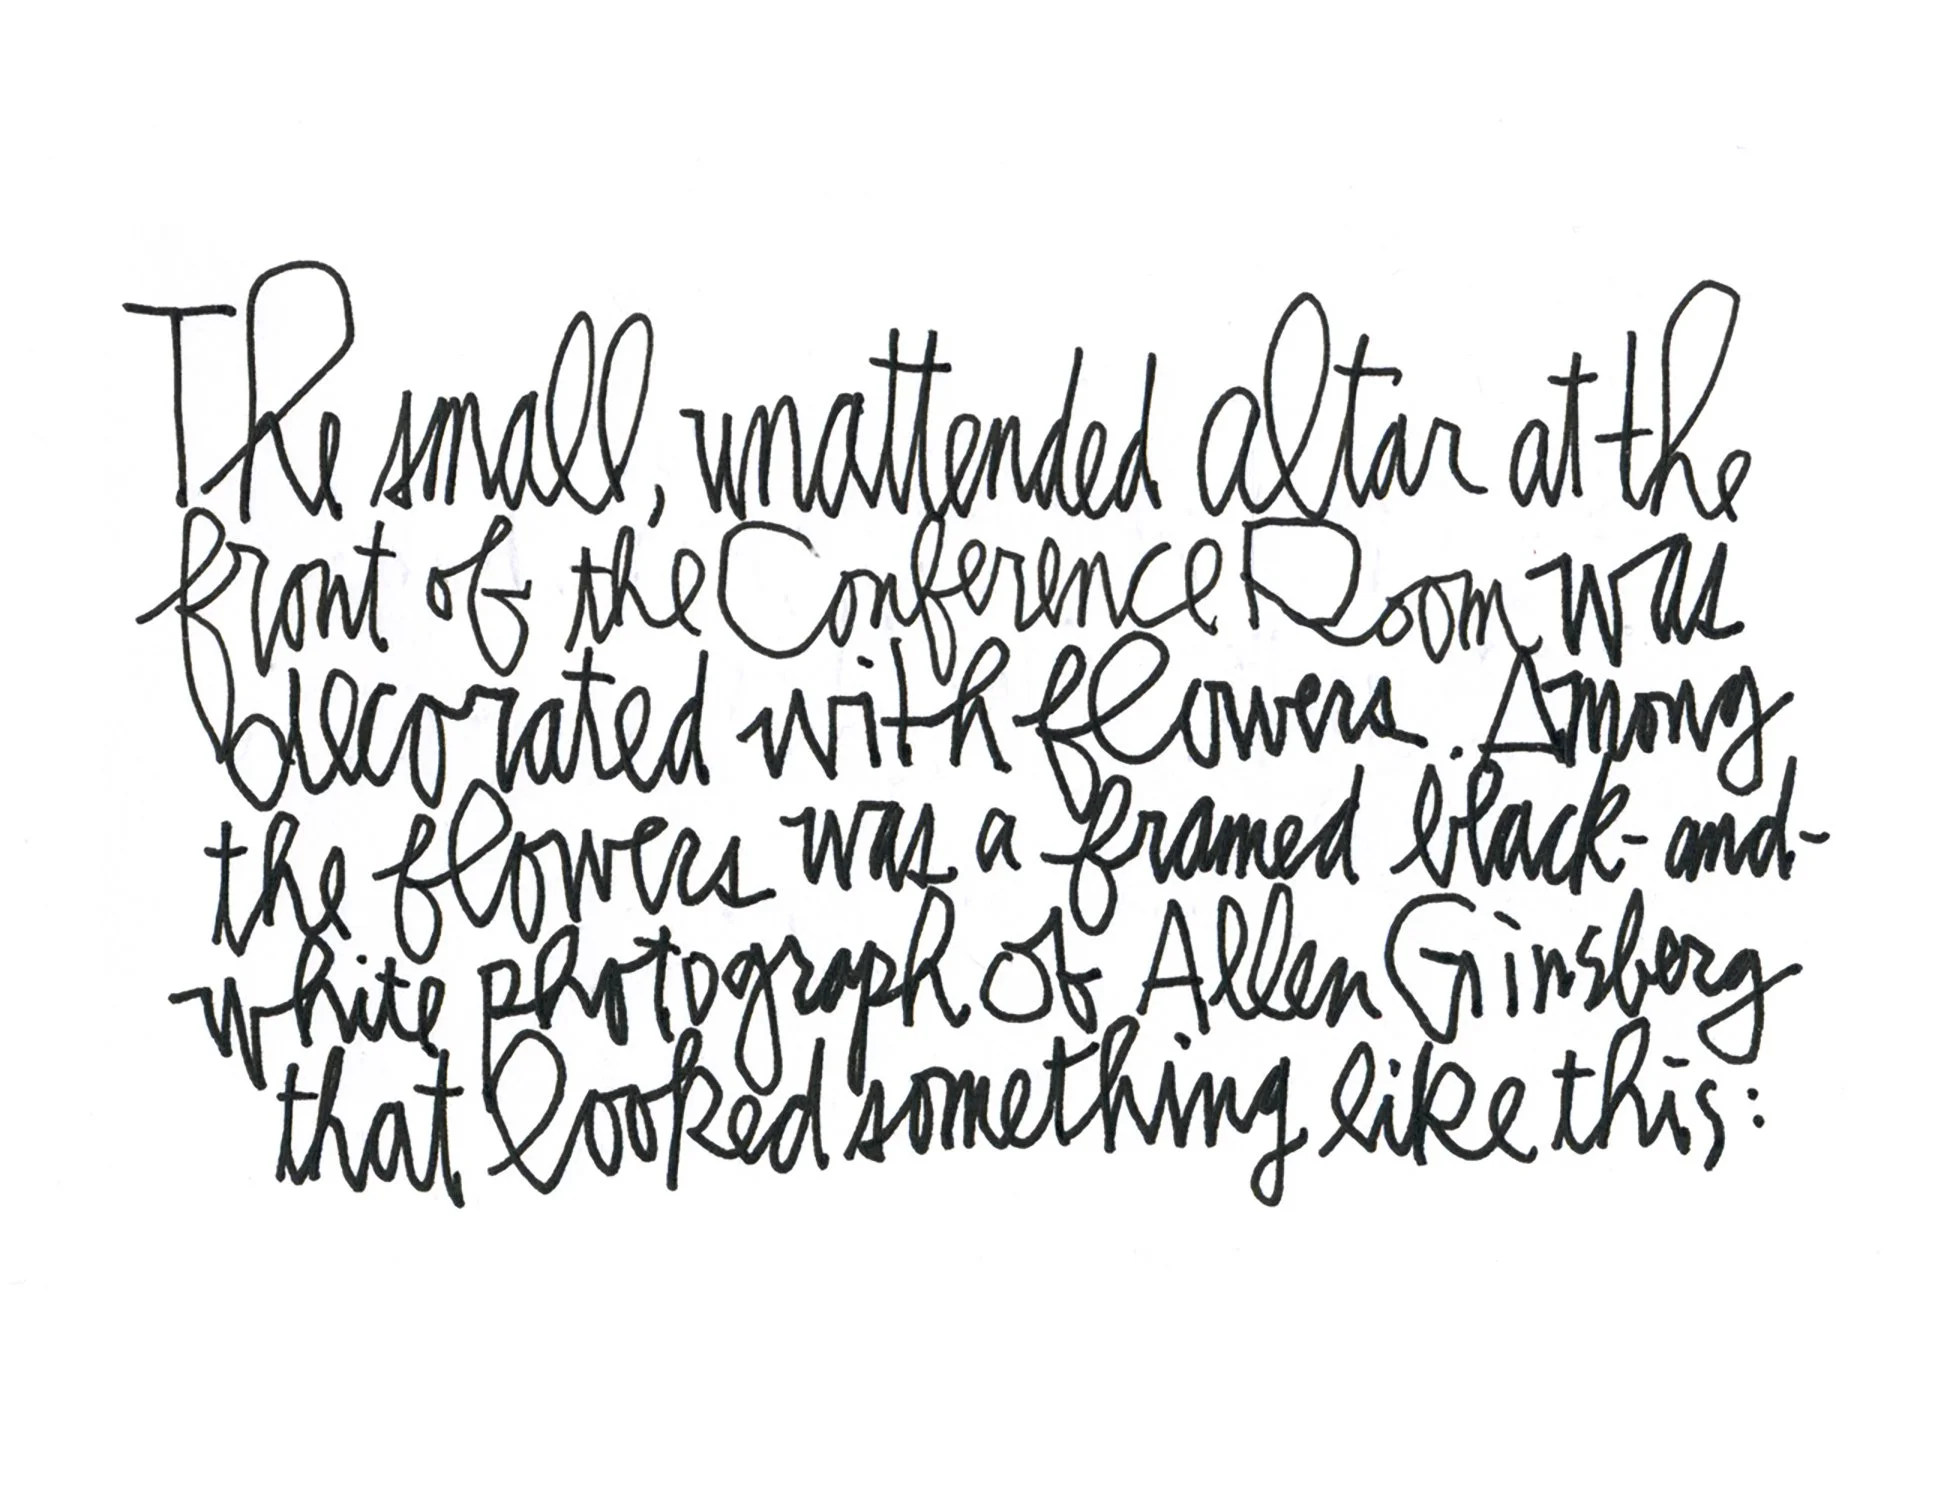 The small, unattended altar at the
front of the Conference Room was
decorated with flowers. Among
the flowers was a framed black-and-
white photograph of Allen Ginsberg
that looked something like this: